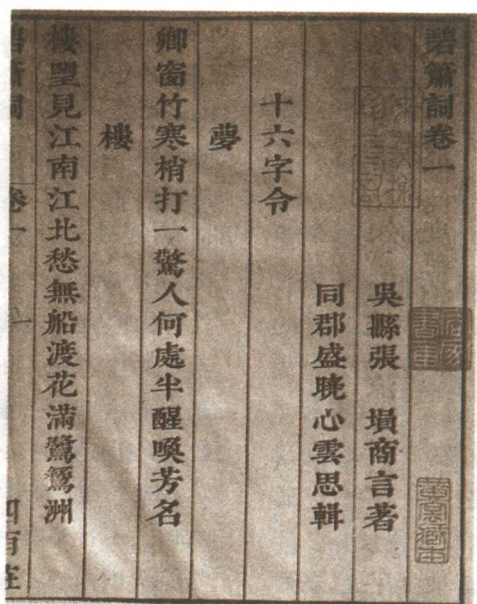 碧簫詞卷一
吳縣張 塤商言著
同郡盛曉心雲思輯
十六字令
夢
卿窗竹寒梢打一驚人何處半醒喚芳名
樓
樓望見江南江北愁無船渡花滿鷺鷥洲
碧簫詞 卷一 一